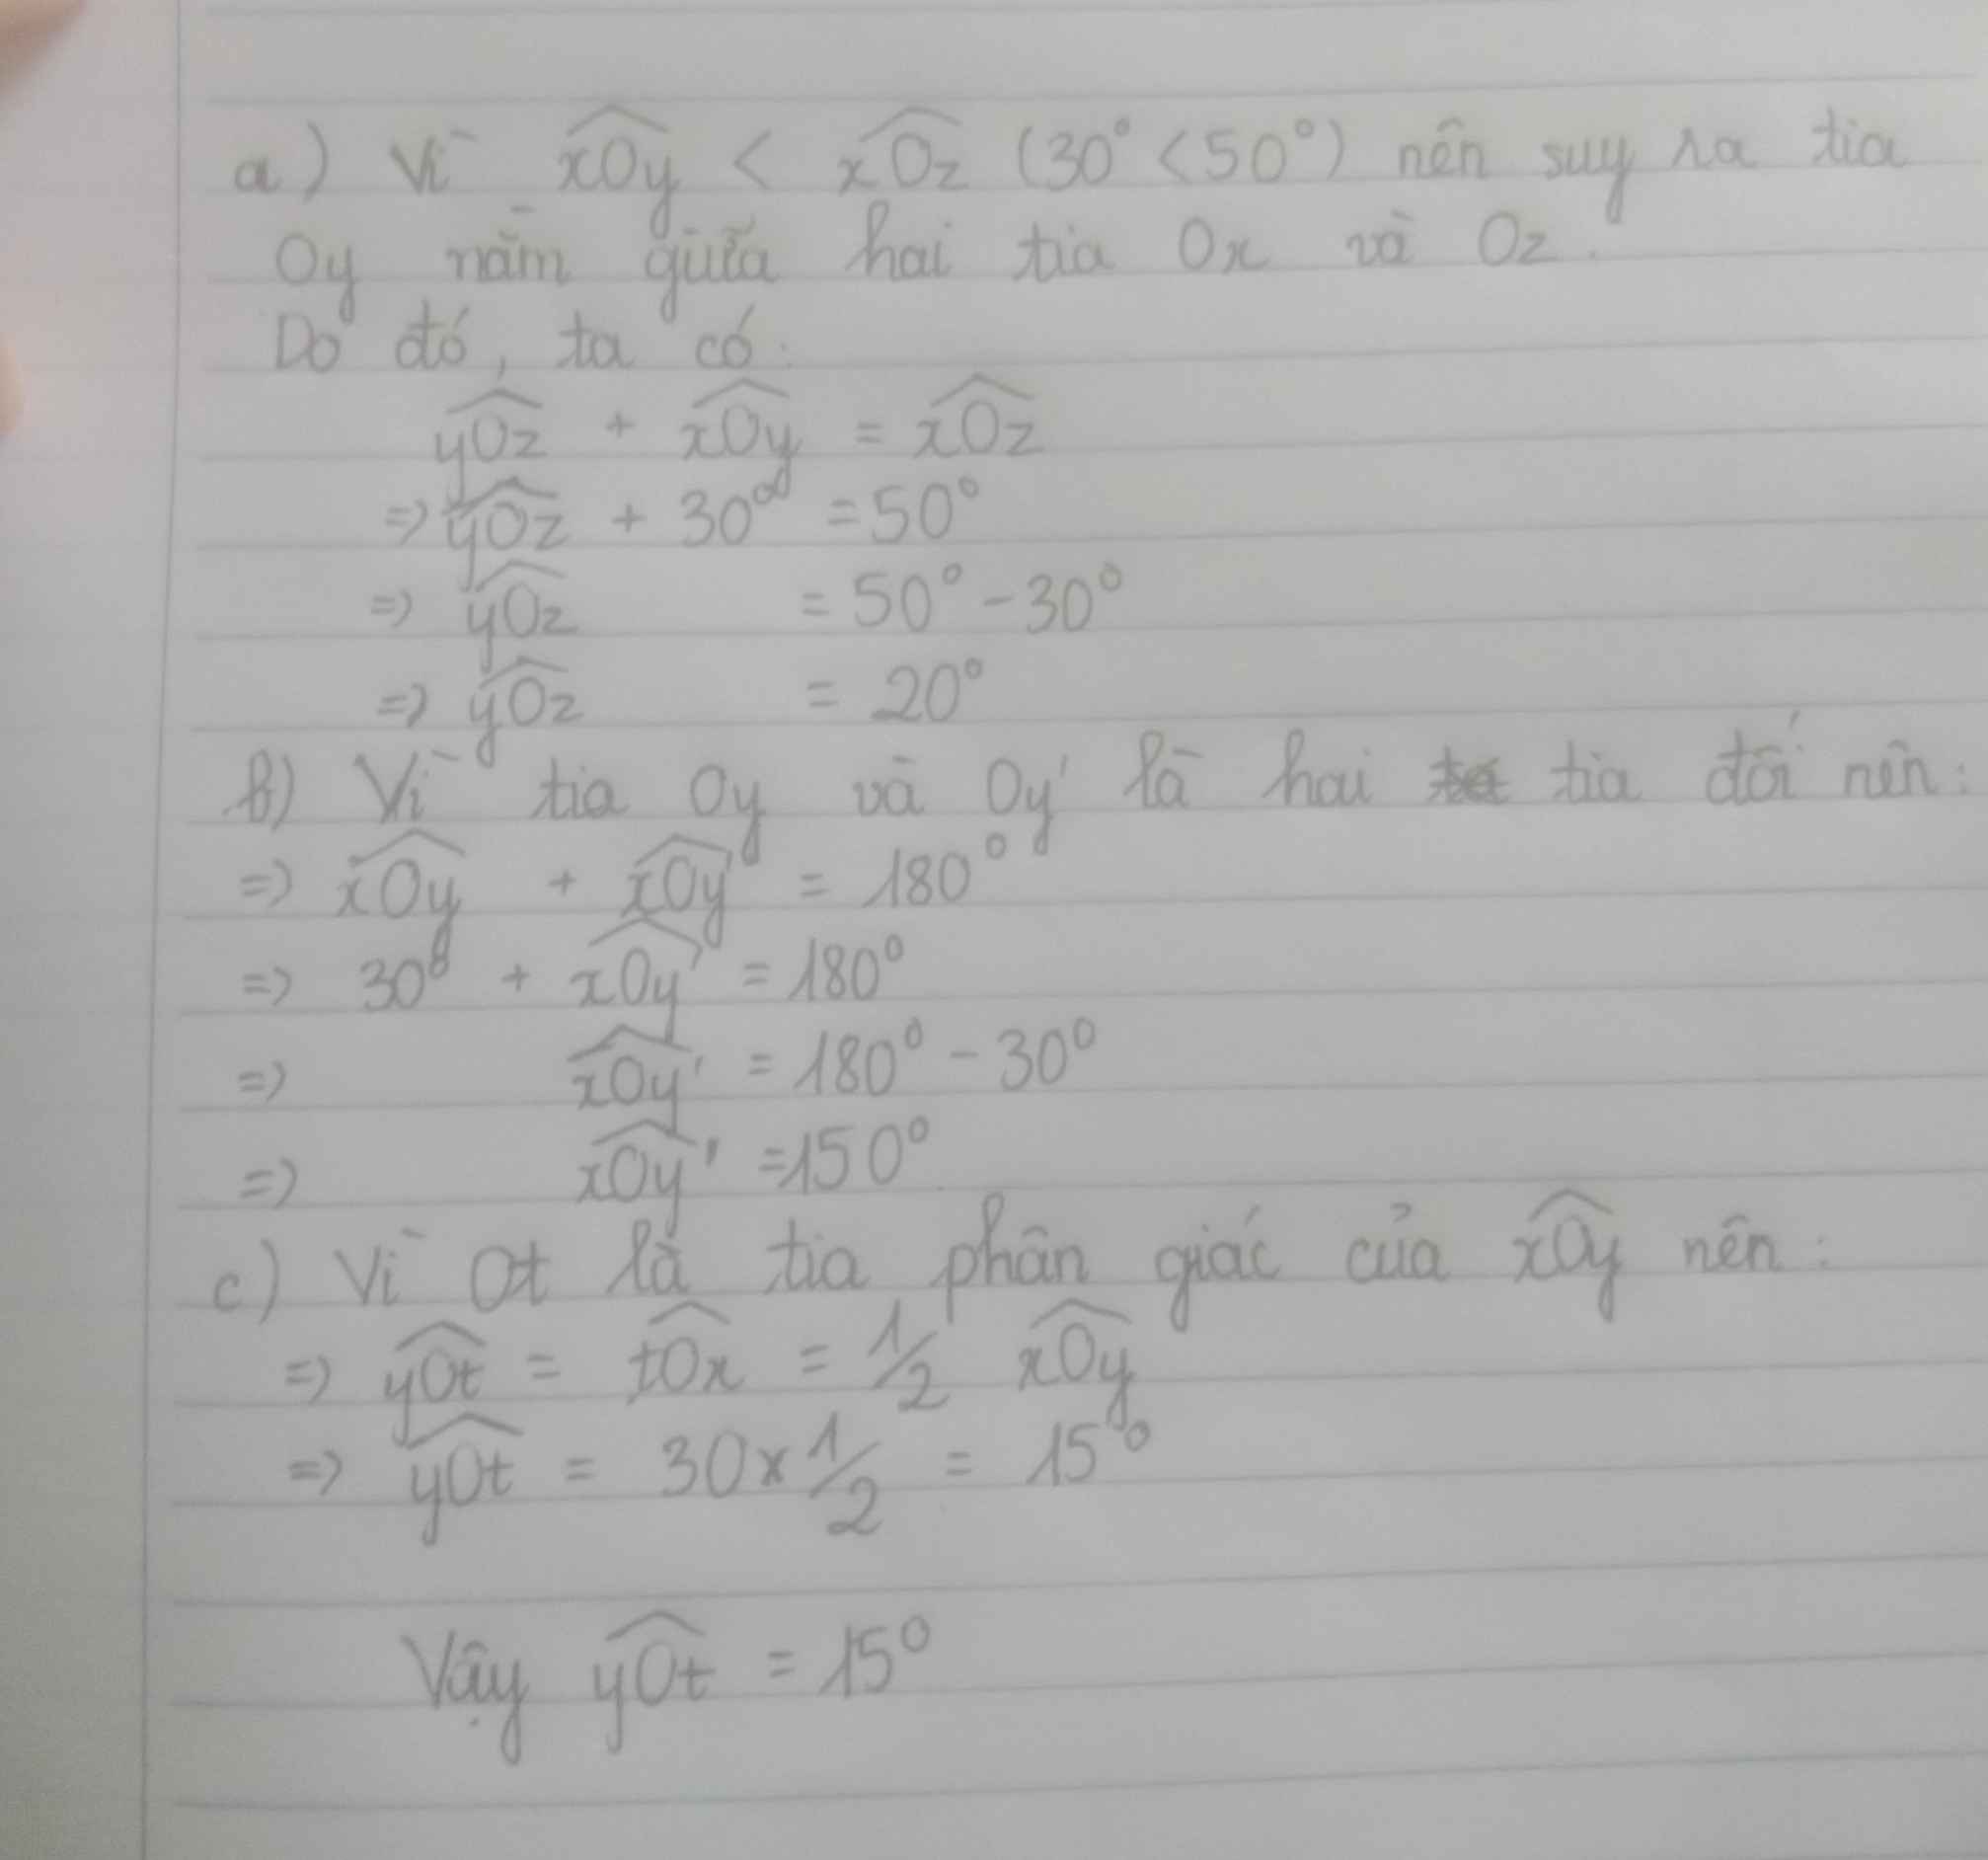 a) Vì xOy < xOz (30° < 50°) nên suy ra tia
Oy nằm giữa hai tia Ox và Oz.
Do đó, ta có:
yOz + xOy = xOz
=> yOz + 30° = 50°
=> yOz = 50° - 30°
=> yOz = 20°
b) Vì tia Oy và Oy' là hai tia đối nên:
=> xOy + xOy' = 180°
=> 30° + xOy' = 180°
=> xOy' = 180° - 30°
=> xOy' = 150°
c) Vì Ot là tia phân giác của xOy nên:
=> yOt = tOx = 1/2 xOy
=> yOt = 30 x 1/2 = 15°
Vậy yOt = 15°